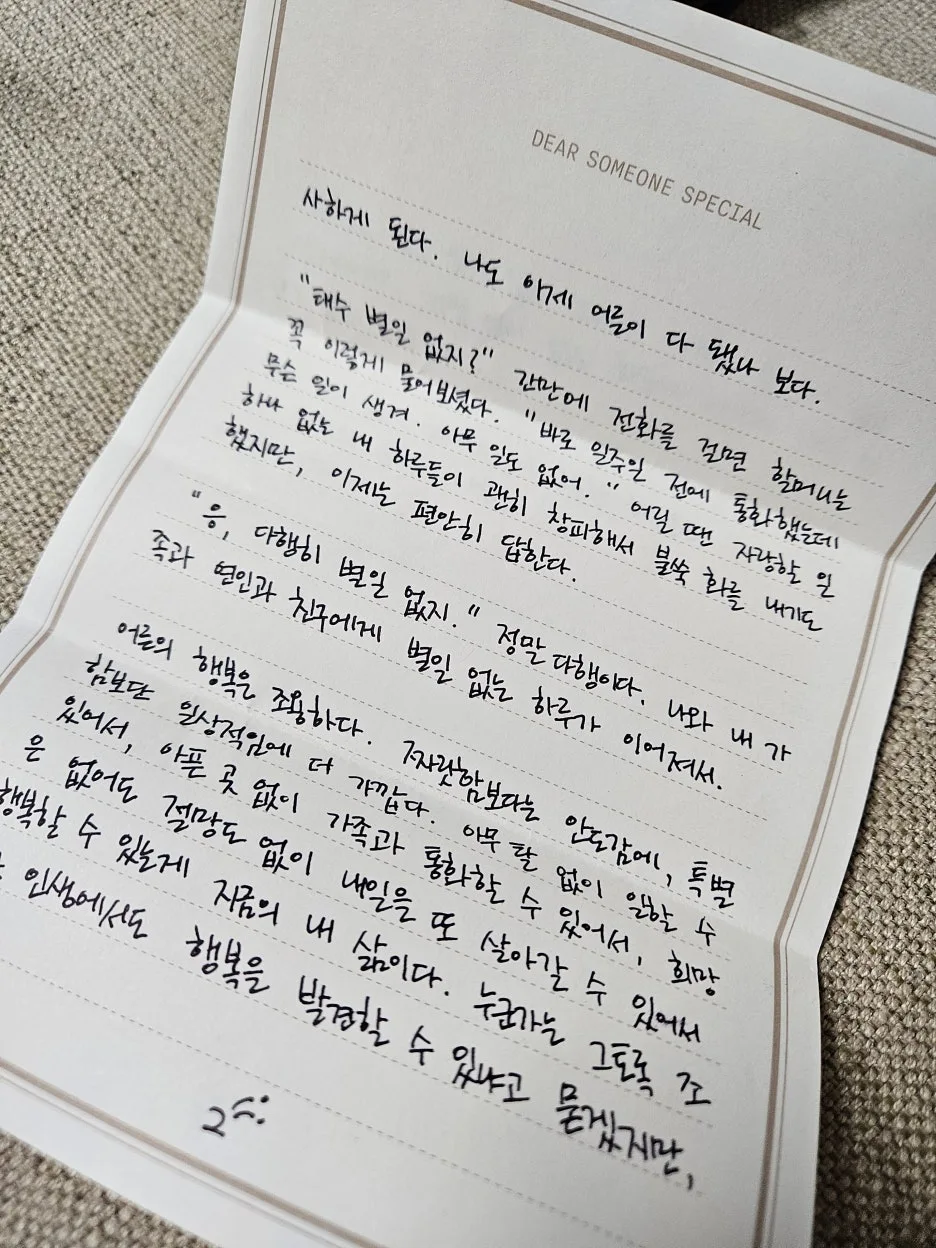 DEAR SOMEONE SPECIAL
사하게 된다. 나도 이제 어른이 다 됐나 보다.
"태수 별일 없지?" 간만에 전화를 걸면 할머니는
꼭 이렇게 물어보셨다. "바로 일주일 전에 통화했는데
무슨 일이 생겨. 아무 일도 없어." 어릴 땐 자랑할 일
하나 없는 내 하루들이 괜히 창피해서 불쑥 화를 내기도
했지만, 이제는 편안히 답한다.
"응, 다행히 별일 없지." 정말 다행이다. 나와 내 가
족과 연인과 친구에게 별일 없는 하루가 이어져서.
어른의 행복은 조용하다. 짜릿함보다는 안도감에, 특별
함보단 일상적임에 더 가깝다. 아무 탈 없이 일할 수
있어서, 아픈 곳 없이 가족과 통화할 수 있어서, 희망
은 없어도 절망도 없이 내일을 또 살아갈 수 있어서
행복할 수 있는게 지금의 내 삶이다. 누군가는 그토록 조
인생에서도 행복을 발견할 수 있냐고 묻겠지만,
2